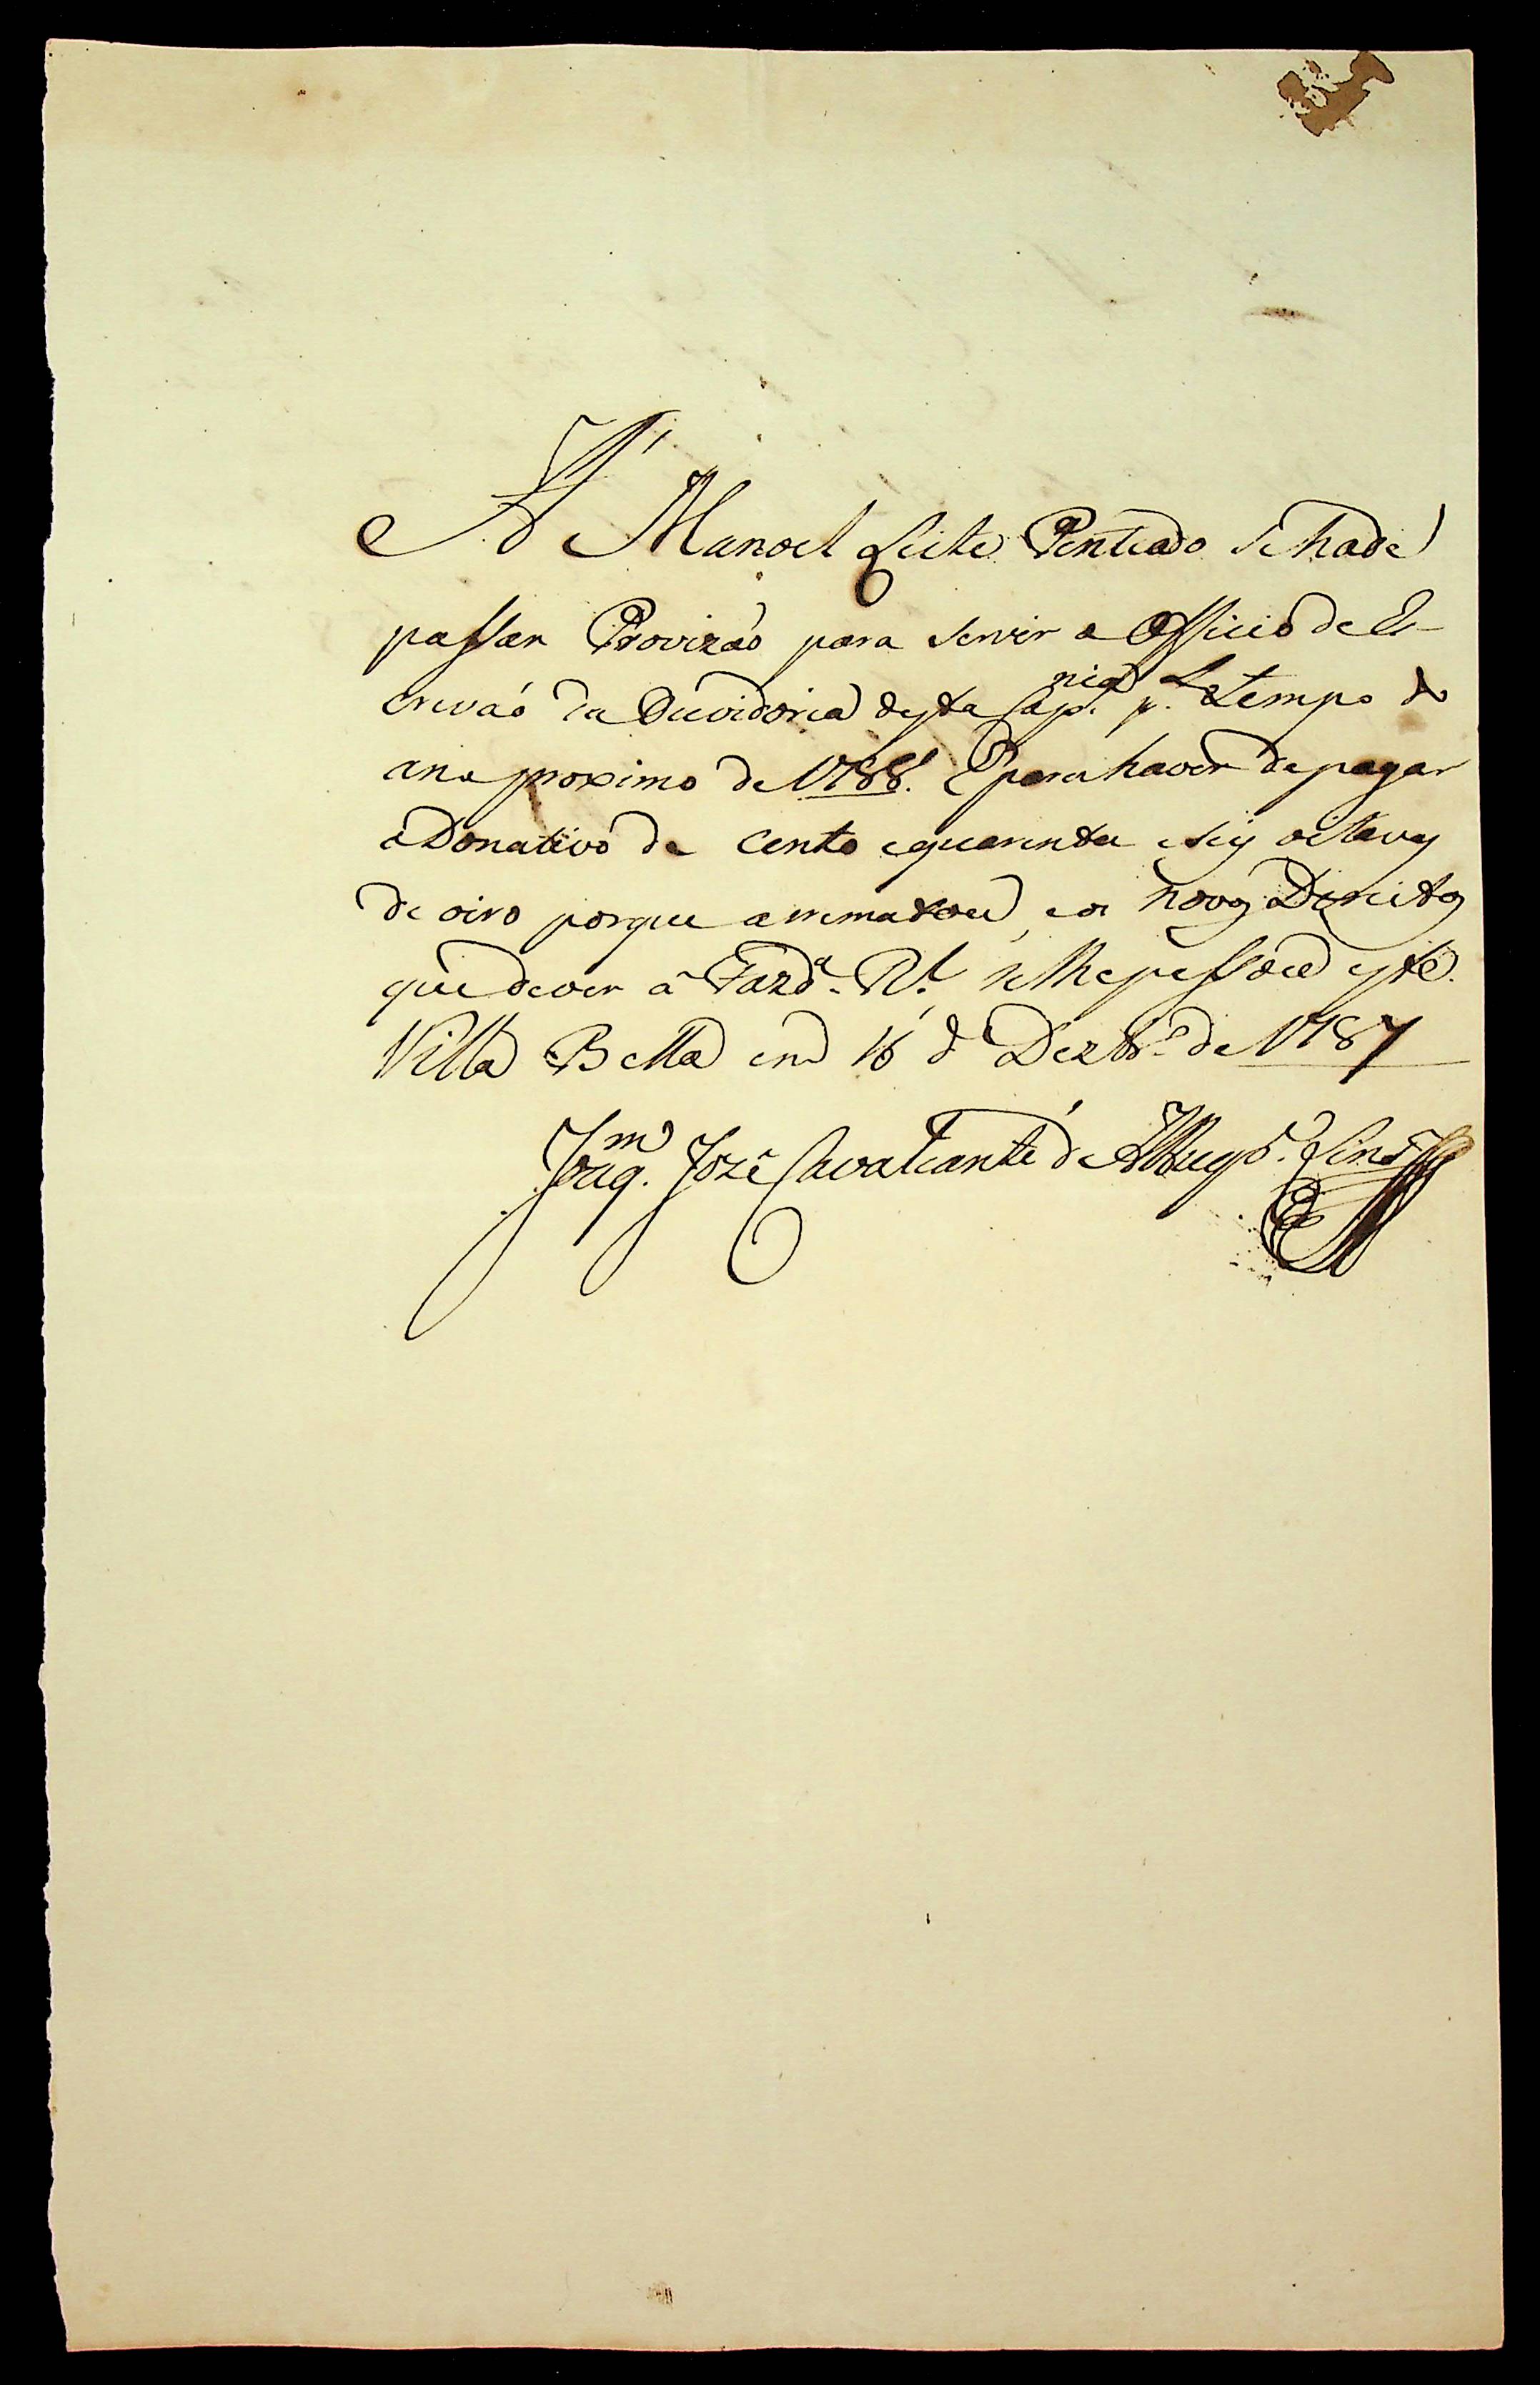 A Manoel Leite Penteado se hade
passar Provizaõ para servir o Officio de Es-
crivaõ da Ouvidoria desta Cap.nia p.lo tempo do
ano proximo de 1788. E para haver de pagar
o Donativo de cento e quarenta e seis oitavas
de oiro porque arrematou, e os novos Direitos
que dever â Fazd.ª R.l, se lhe passou este.
Villa Bella em 16 de Dezbr.º de 1787
Joaq.m Jozé Cavalcante de Albuq.e Lins